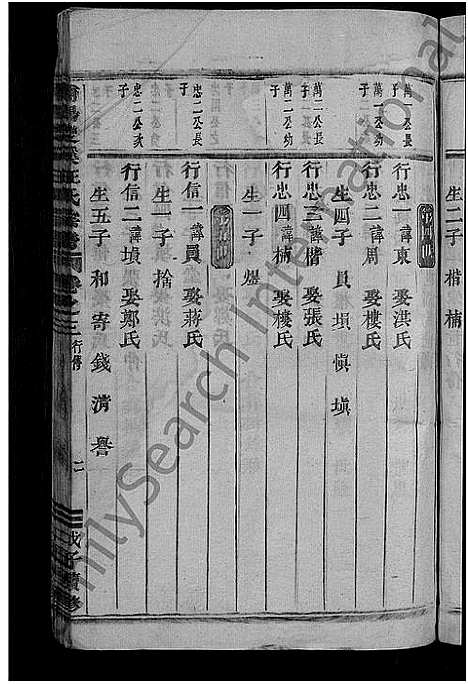 生二子 楷 楠
第四世
萬一公長子
行忠一諱東 娶洪氏
萬一公幼子
行忠二諱周 娶樓氏
生四子 員 塤 慎 塡
萬二公長子
行忠三諱楷 娶張氏
萬二公幼子
行忠四諱楠 娶樓氏
生一子 煜
忠二公長子
行信一諱員 娶蔣氏
生一子 捨
忠二公次子
行信二諱塤 娶鄭氏
生五子 和 寄 錢 清 譽
行傳
二
戊子續修
FamilySearch International